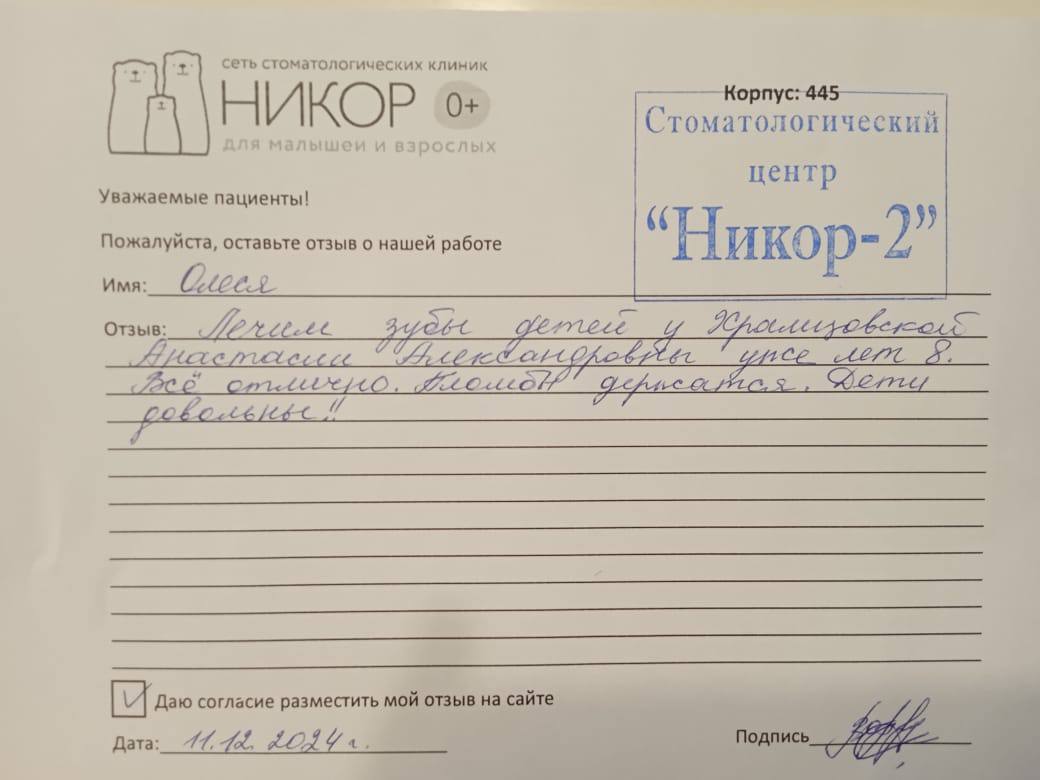 сеть стоматологических клиник
НИКОР 0+
для малышей и взрослых
Корпус: 445
Стоматологический
центр
“Никор-2”
Уважаемые пациенты!
Пожалуйста, оставьте отзыв о нашей работе
Имя: Олеся
Отзыв: Лечим зубы детей у Храмцовской
Анастасии Александровны уже лет 8.
Всё отлично. Пломбы держатся. Дети
довольны!!
Даю согласие разместить мой отзыв на сайте
Дата: 11.12.2024 г.
Подпись